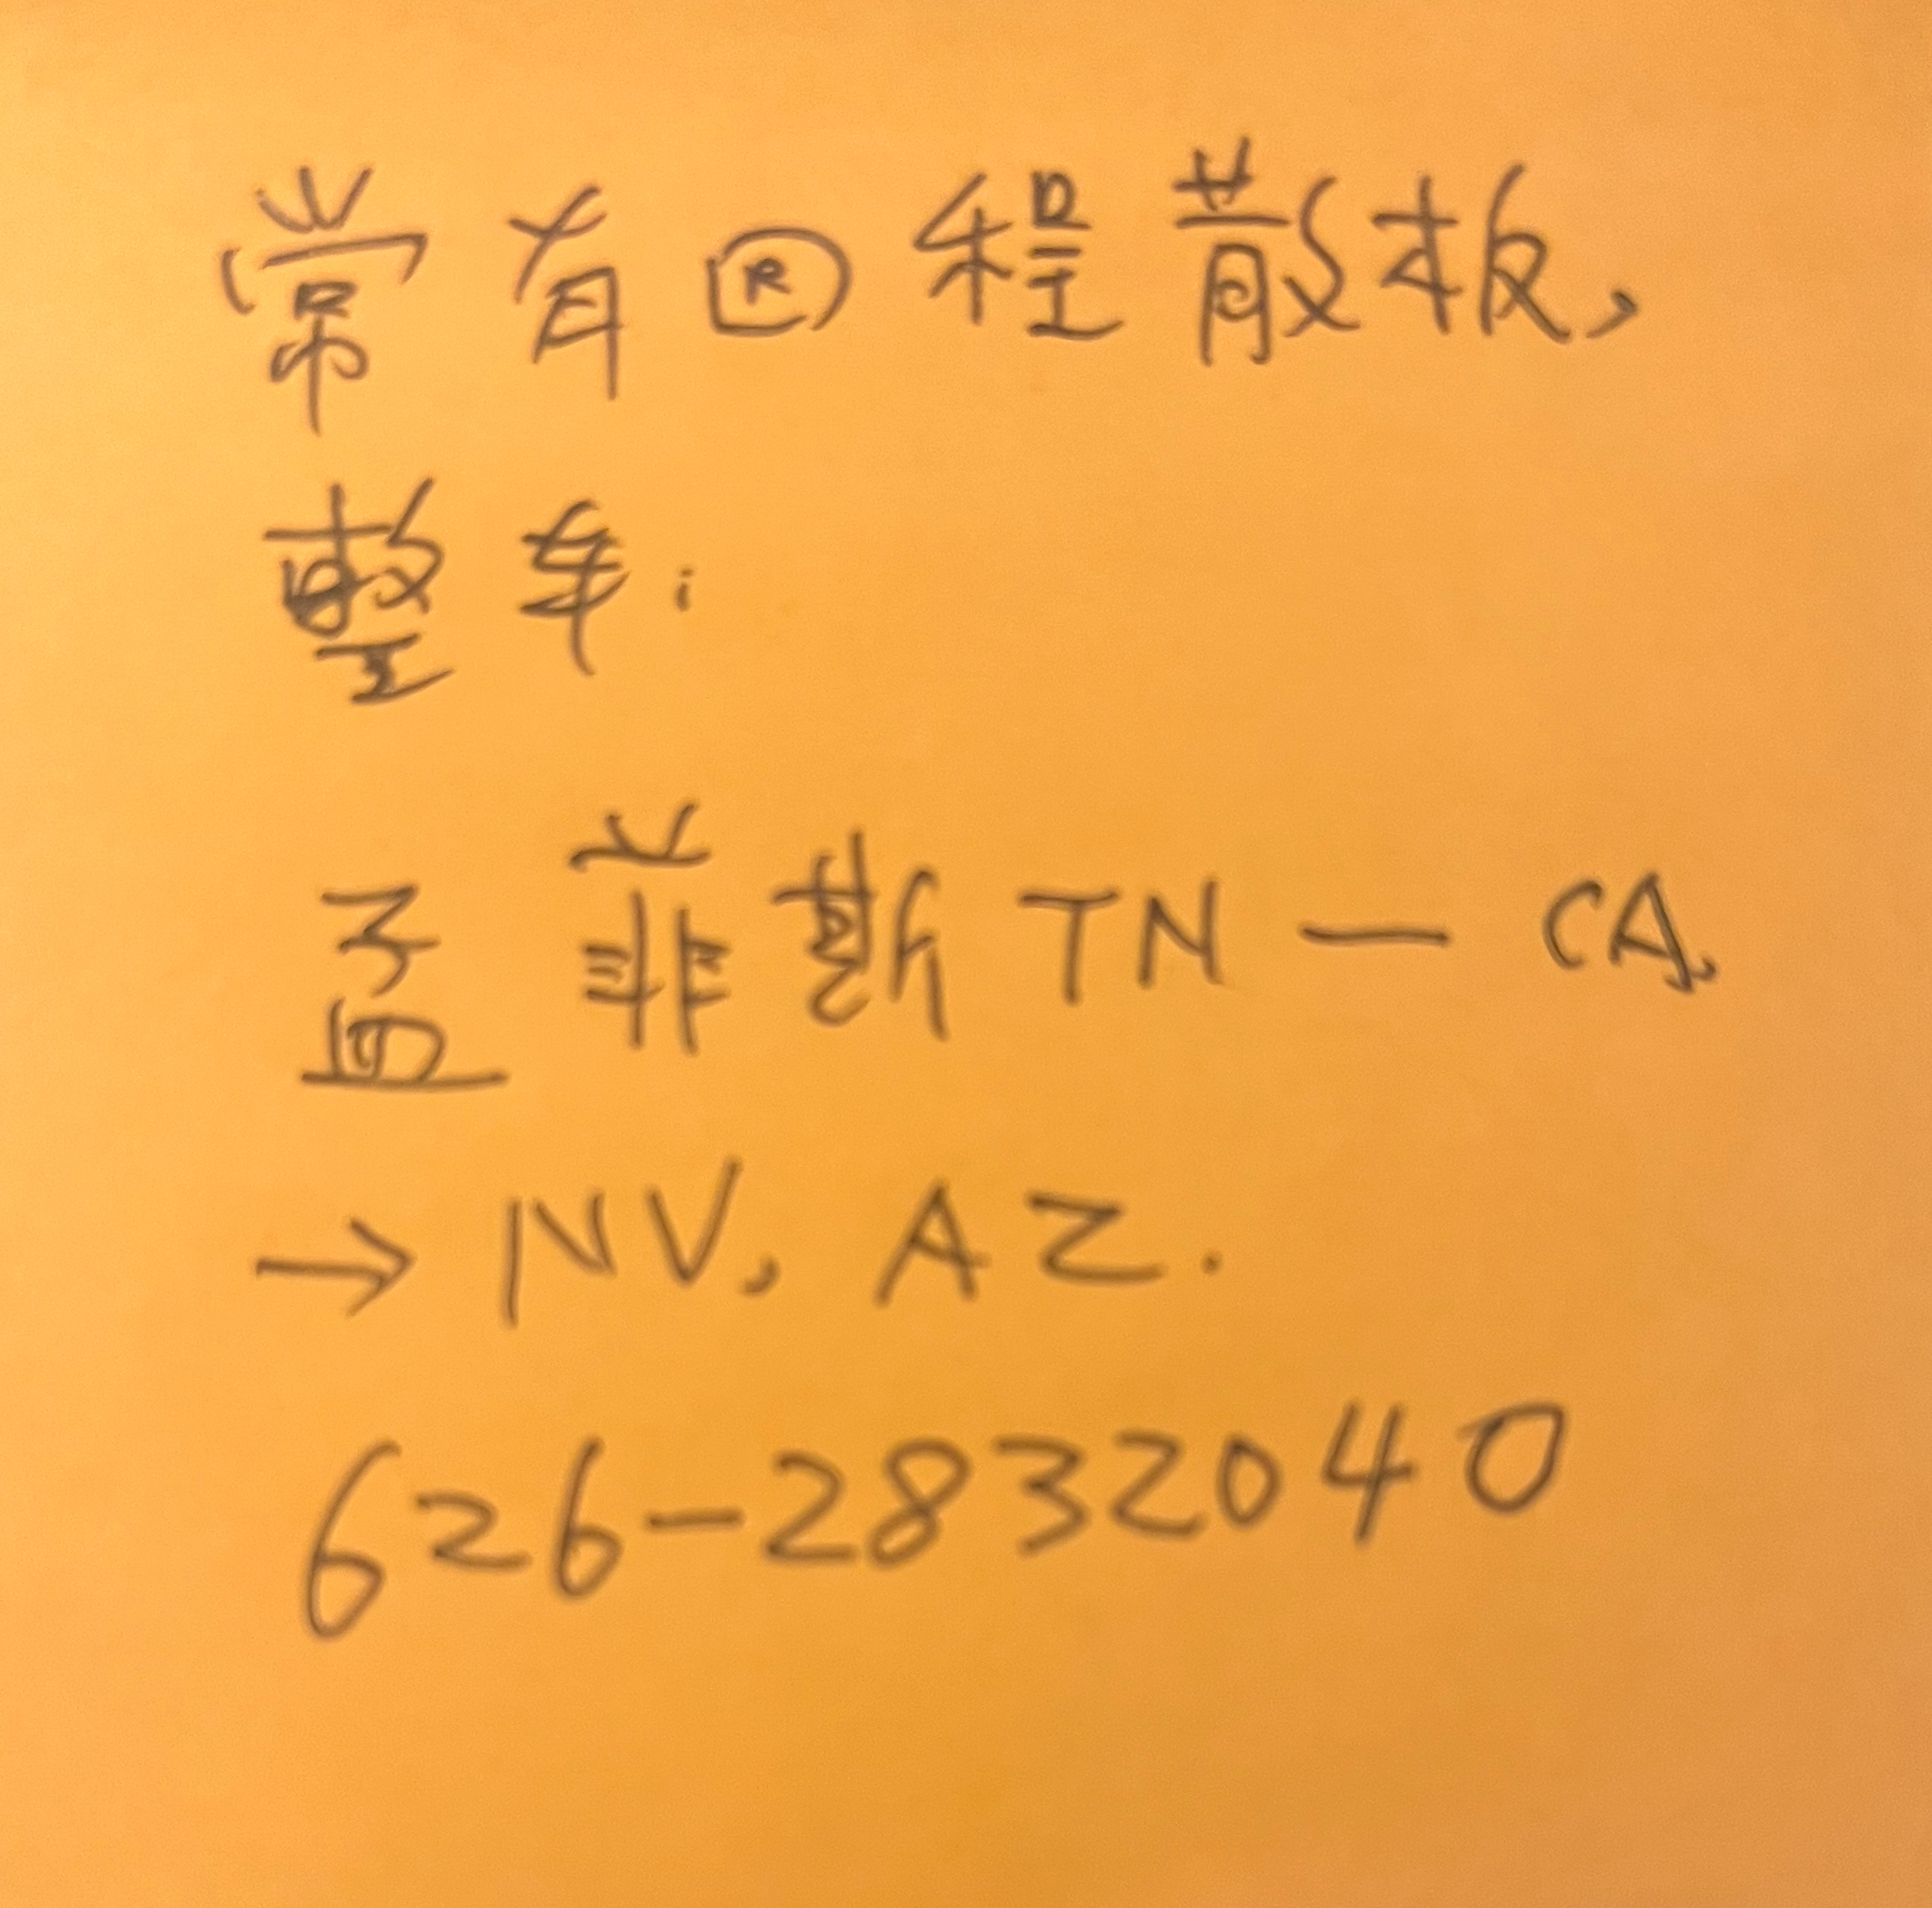 常有回程散板,
整车:
孟菲斯 TN — CA,
→ NV, AZ.
626-2832040